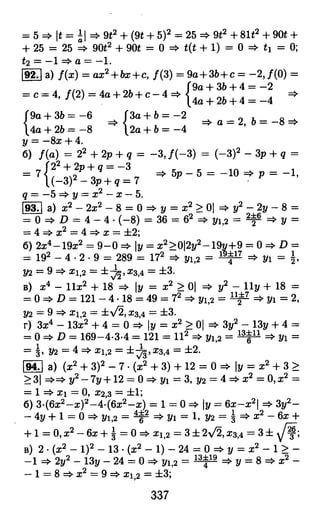 = 5 ⇒ |t = 1/a| ⇒ 9t² + (9t + 5)² = 25 ⇒ 9t² + 81t² + 90t +
+ 25 = 25 ⇒ 90t² + 90t = 0 ⇒ t(t + 1) = 0 ⇒ t₁ = 0;
t₂ = −1 ⇒ a = −1.
92. а) f(x) = ax²+bx+c, f(3) = 9a+3b+c = −2, f(0) =
= c = 4, f(2) = 4a + 2b + c − 4 ⇒ {9a + 3b + 4 = −2 {4a + 2b + 4 = −4 ⇒
{9a + 3b = −6 {4a + 2b = −8 ⇒ {3a + b = −2 {2a + b = −4 ⇒ a = 2, b = −8 ⇒
y = −8x + 4.
б) f(a) = 2² + 2p + q = −3, f(−3) = (−3)² − 3p + q =
= 7 {2² + 2p + q = −3 {(−3)² − 3p + q = 7 ⇒ 5p − 5 = −10 ⇒ p = −1,
q = −5 ⇒ y = x² − x − 5.
93. а) x² − 2x² − 8 = 0 ⇒ y = x² ≥ 0| y² − 2y − 8 =
= 0 ⇒ D = 4 − 4 · (−8) = 36 = 6² ⇒ y₁,₂ = (2±6)/2 ⇒ y =
= 4 ⇒ x² = 4 ⇒ x = ±2;
б) 2x⁴−19x² = 9−0 ⇒ |y = x²≥0|2y²−19y+9 = 0 ⇒ D =
= 19² − 4 · 2 · 9 = 289 = 17² ⇒ y₁,₂ = (19±17)/4 ⇒ y₁ = 1/2,
y₂ = 9 ⇒ x₁,₂ = ±1/√2, x₃,₄ = ±3.
в) x⁴ − 11x² + 18 ⇒ |y = x² ≥ 0| ⇒ y² − 11y + 18 =
= 0 ⇒ D = 121 − 4 · 18 = 49 = 7² ⇒ y₁,₂ = (11±7)/2 ⇒ y₁ = 2,
y₂ = 9 ⇒ x₁,₂ = ±√2, x₃,₄ = ±3.
г) 3x⁴ − 13x² + 4 = 0 ⇒ |y = x² ≥ 0| ⇒ 3y² − 13y + 4 =
= 0 ⇒ D = 169−4·3·4 = 121 = 11² ⇒ y₁,₂ = (13±11)/6 ⇒ y₁ =
= 1/3, y₂ = 4 ⇒ x₁,₂ = ±1/√3, x₃,₄ = ±2.
94. а) (x² + 3)² − 7 · (x² + 3) + 12 = 0 ⇒ |y = x² + 3 ≥
≥ 3| ⇒⇒ y² − 7y + 12 = 0 ⇒ y₁ = 3, y₂ = 4 ⇒ x² = 0, x² =
= 1 ⇒ x₁ = 0, x₂,₃ = ±1;
б) 3·(6x²−x)²−4·(6x²−x) = 1 = 0 ⇒ |y = 6x−x²| ⇒ 3y²−
− 4y + 1 = 0 ⇒ y₁,₂ = (4±2)/6 ⇒ y₁ = 1, y₂ = 1/3 ⇒ x² − 6x +
+ 1 = 0, x² − 6x + 1/3 = 0 ⇒ x₁,₂ = 3 ± 2√2, x₃,₄ = 3 ± √(26/3);
в) 2 · (x² − 1)² − 13 · (x² − 1) − 24 = 0 ⇒ y = x² − 1 ≥ −
−1 ⇒ 2y² − 13y − 24 = 0 ⇒ y₁,₂ = (13±19)/4 ⇒ y = 8 ⇒ x² −
− 1 = 8 ⇒ x² = 9 ⇒ x₁,₂ = ±3;
337